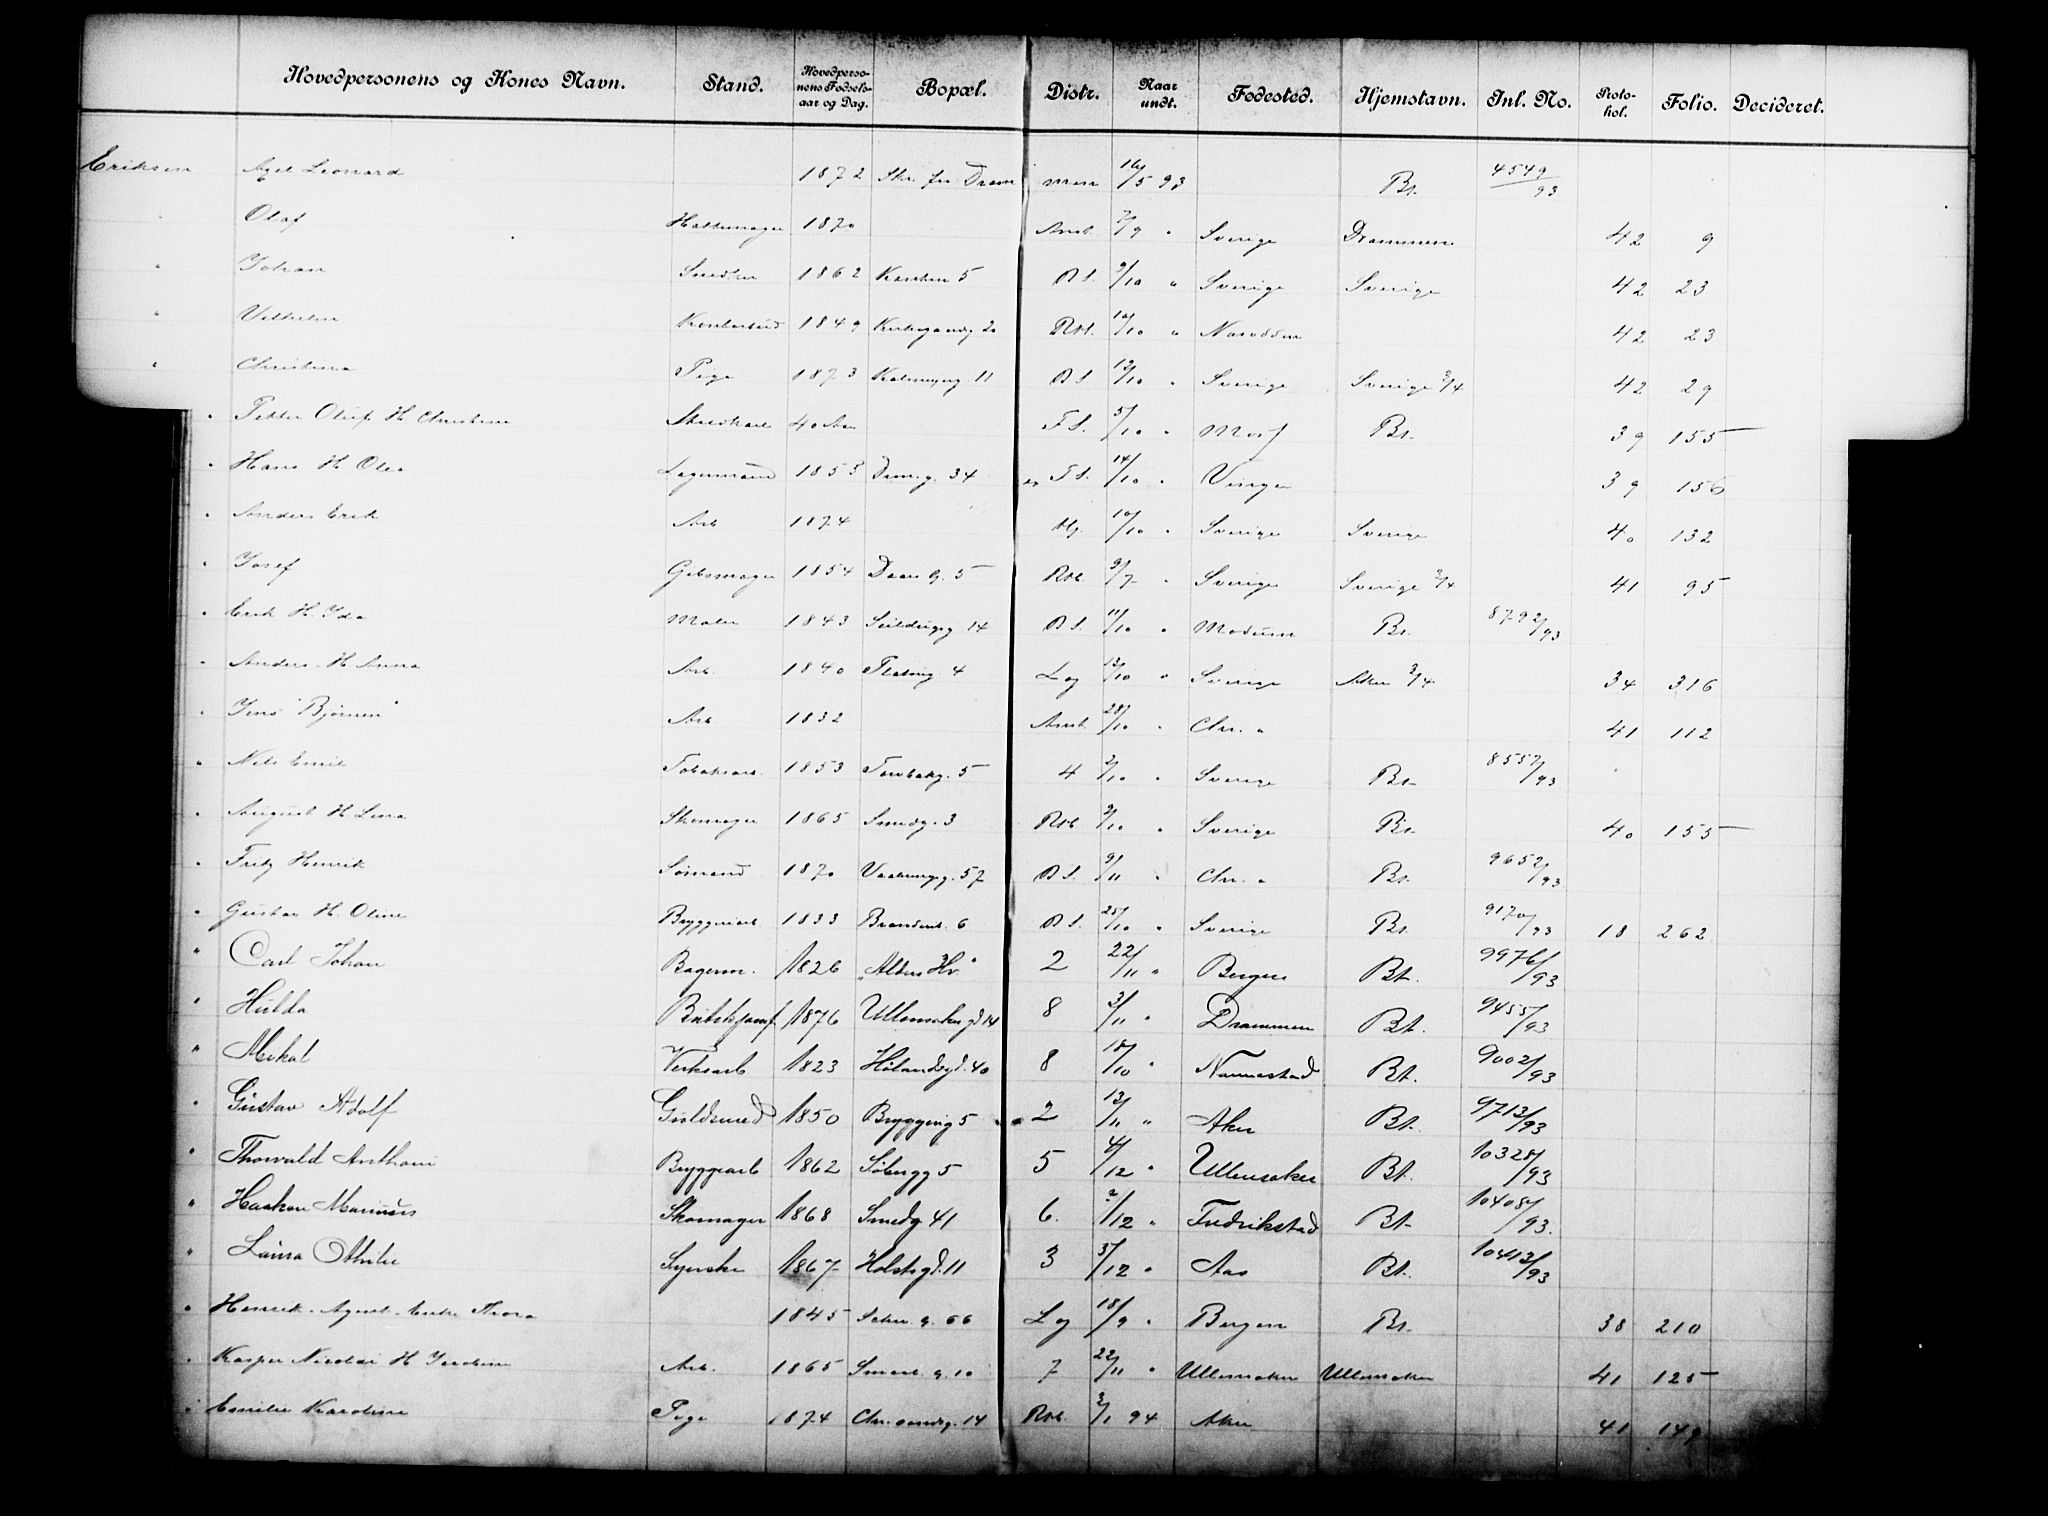 Hovedpersonens og Kones Navn. Stand. Hovedpersonens Fødselsaar og Dag. Bopæl. Distr. Naar undt. Fødested. Hjemstavn. Inl. No. Protokol. Folio. Decideret.
Eriksen Axel Leonard 1872 Skr. fra Drammen 16/5 93 Bt. 4549/93
" Olaf Hattemager 1870 Anst. 7/9 " Sverige Drammen 42 9
" Johan Snedker 1862 Kanten 5 B S. 9/10 " Sverige Sverige 42 23
" Vilhelm Kontorbud 1849 Kirkegaardg 20 Rtb. 10/10 " Næsodden 42 23
" Christina Pige 1873 11 B S. 12/10 " Sverige Sverige 3/4 42 29
" Petter Oluf H Christine 40 Aar F S. 5/10 " Moss Bt. 39 155
" Hans H Olea Lagermand 1853 Damg. 34 F S. 14/10 " Vinger 39 156
" Anders Erik Arb 1874 10/10 " Sverige Sverige 40 132
" Josef Gibsmager 1854 Daaeg. 5 Rtb. 9/7 " Sverige Sverige 3/4 41 95
" Erik H. Ida Maler 1843 Seildugsg. 14 B S. 11/10 " Modum Bt. 8792/93
" Anders H Anna Arb 1840 Flatnig 4 Log 13/10 " Sverige Aker 3/4 34 316
" Jens "Bjørnen" Arb 1832 Anst. 28/10 " Chr.a 41 112
" Nils Emil Tobaksarb. 1853 Torvbakg. 5 4 2/10 " Sverige Bt. 8557/93
" August H Lina Skomager 1865 Smedg. 3 Rtb 9/10 " Sverige Bt. 40 155
" Fritz Henrik Sømand 1870 Vaalerengg. 57 B S. 9/11 " Chr.a Bt. 9652/93
" Gustav H. Oline Bryggearb 1833 Brandtrt. 6 B S. 25/10 " Sverige Bt. 9170/93 18 262
" Carl Johan Bagerm. 1826 "Alders Hv." 2 22/11 " Bergen Bt. 9976/93
" Hulda Butikjomf 1876 Ullensaker gd 14 8 3/11 " Drammen Bt. 9455/93
" Mikal Verksarb 1823 Hølandsgd. 40 8 18/10 " Nannestad Bt. 9002/93
" Gustav Adolf Guldsmed 1850 Bryggeng 5 2 13/11 " Aker Bt. 9713/93
" Thorvald Anthoni Bryggearb 1862 Söbergg 5 5 4/12 " Ullensaker Bt. 10328/93
" Haakon Marinius Skomager 1868 Smedg 41 6. 2/12 " Fredrikstad Bt. 10408/93.
" Laura Othilie Syerske 1867 Holstsgd. 11 3 5/12 " Aas Bt. 10413/93
" Henrik August Enke Thora 1845 g. 66 Log 18/9 " Bergen Bt. 38 210
" Kasper Nicolai H Arb. 1865 g. 10 7 22/11 " Ullensaker Ullensaker 41 125
" Emilie Karoline Pige 1874 g. 14 Rtb. 3/1 94 Aker 41 149